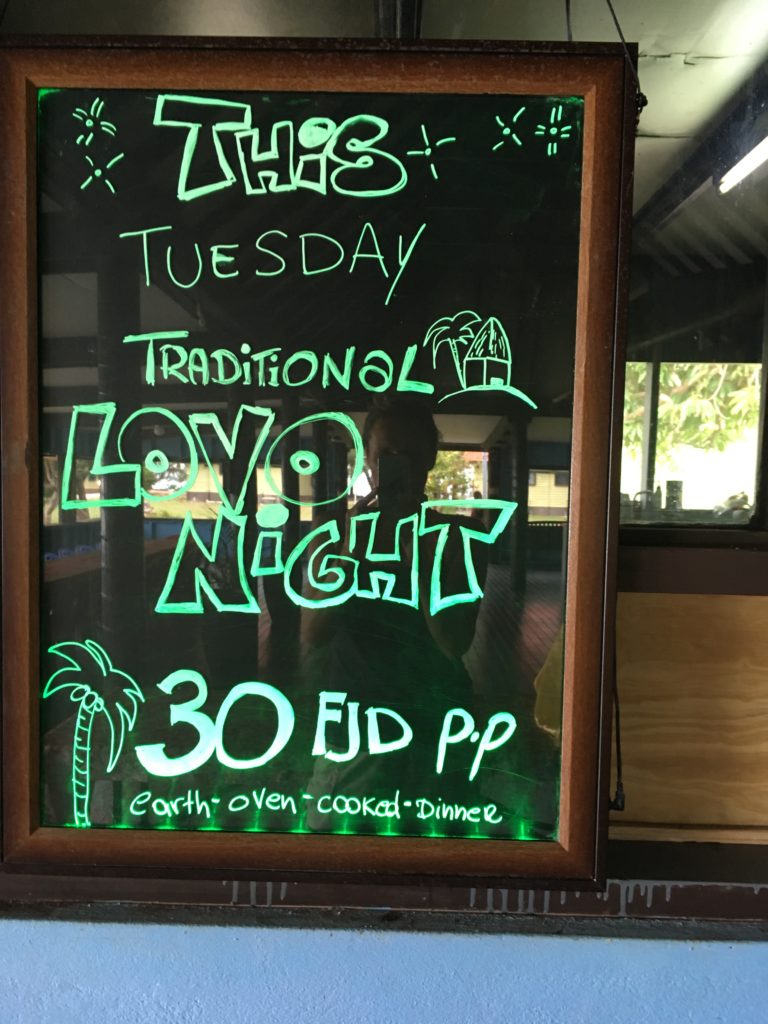 THiS
TUESDAY
TRADiTiONAL
LOVO
NiGHT
30 FJD p.p
earth-oven-cooked-Dinner